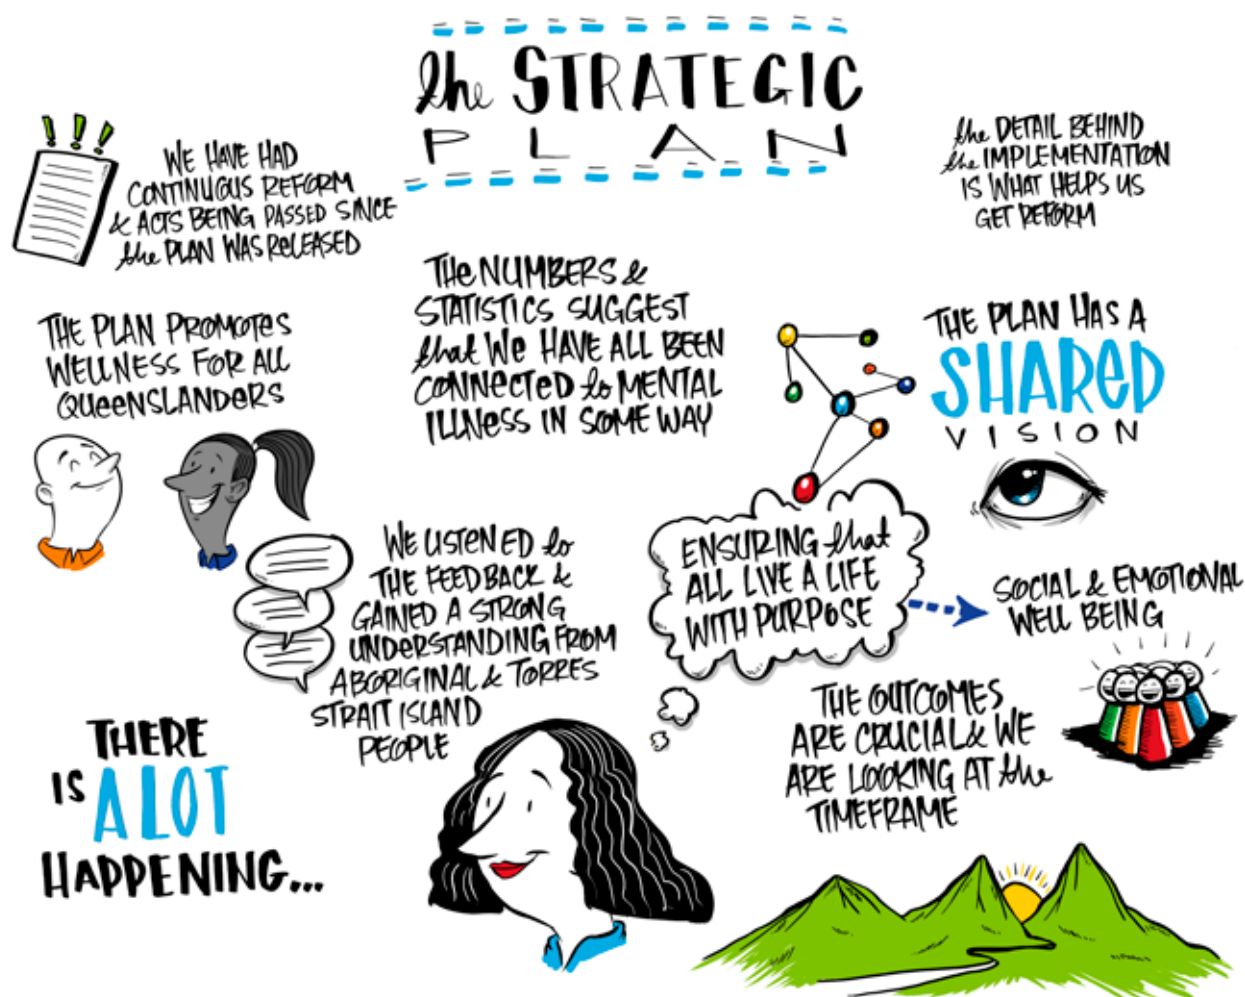 the STRATEGIC
PLAN
WE HAVE HAD
CONTINUOUS REFORM
& ACTS BEING PASSED SINCE
the PLAN WAS RELEASED
the DETAIL BEHIND
the IMPLEMENTATION
IS WHAT HELPS US
GET REFORM
THE NUMBERS &
STATISTICS SUGGEST
that WE HAVE ALL BEEN
CONNECTED to MENTAL
ILLNESS IN SOME WAY
THE PLAN PROMOTES
WELLNESS FOR ALL
QUEENSLANDERS
THE PLAN HAS A
SHARED
VISION
WE LISTENED to
THE FEEDBACK &
GAINED A STRONG
UNDERSTANDING FROM
ABORIGINAL & TORRES
STRAIT ISLAND
PEOPLE
ENSURING that
ALL LIVE A LIFE
WITH PURPOSE
SOCIAL & EMOTIONAL
WELL BEING
THE OUTCOMES
ARE CRUCIAL & WE
ARE LOOKING AT the
TIMEFRAME
THERE
IS A LOT
HAPPENING...